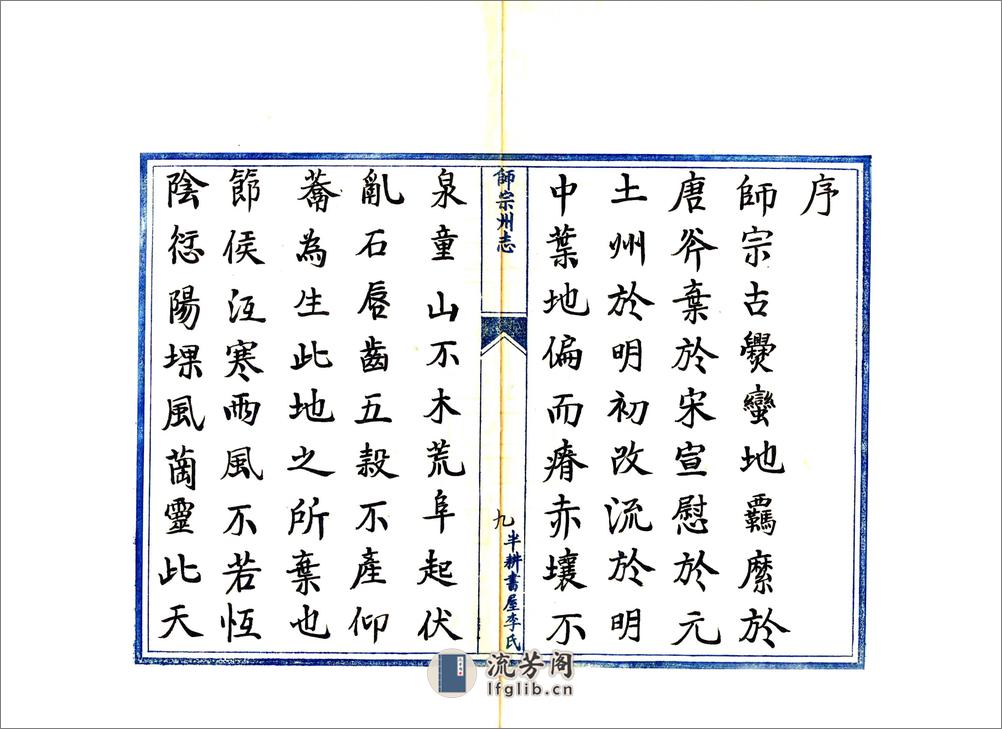 序
師宗古爨蠻地羈縻於
唐斧棄於宋宣慰於元
土州於明初改流於明
中葉地偏而瘠赤壤不
師宗州志
九
半耕書屋李氏
泉童山不木荒阜起伏
亂石唇齒五穀不產仰
蕎為生此地之所棄也
節侯沍寒雨風不若恆
陰愆陽堁風菌靈此天
流芳阁
lfglib.cn